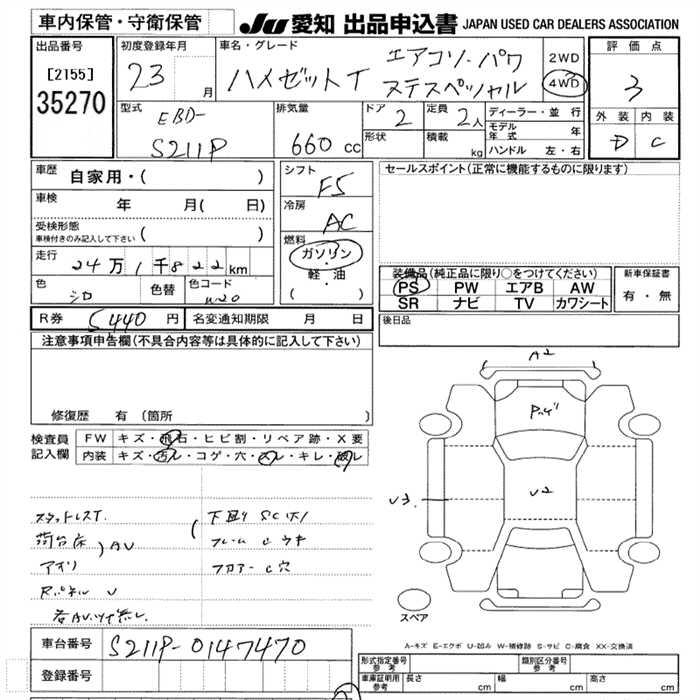 車内保管・守衛保管
JU 愛知 出品申込書 JAPAN USED CAR DEALERS ASSOCIATION
出品番号
[2155]
35270
初度登録年月
23 月
車名・グレード
ハイゼットT
エアコン・パワ
ステスペシャル
2WD
4WD
評価点
3
外装 内装
D C
型式
EBD-
S211P
排気量
660 cc
ドア 2
形状
定員 2人
積載 kg
ディーラー・並行
モデル年式 年
ハンドル 左・右
車歴
自家用・( )
車検 年 月( 日)
受検形態
車検付きのみ記入して下さい ( )
走行
24万1千822km
色 シロ
色替
色コード W20
シフト F5
冷房 AC
燃料
ガソリン
軽・油
( )
セールスポイント(正常に機能するものに限ります)
装備品(純正品に限り○をつけてください)
PS PW エアB AW
SR ナビ TV カワシート
新車保証書
有・無
R券 5440 円 名変通知期限 月 日
後日品
注意事項申告欄(不具合内容等は具体的に記入して下さい)
修復歴 有(箇所
検査員
記入欄
FW キズ・飛石・ヒビ割・リペア跡・X要
内装 キズ・汚レ・コゲ・穴・スレ・キレ・破レ
スタットレスT.
荷台床
アオリ
) AV
Rパネル U
(
下回り SC大
フレーム C ウキ
フロアー C穴
A2
U3
U2
スペア
A-キズ E-エクボ U-凹み W-補修跡 S-サビ C-腐食 XX-交換済
車台番号 S211P-0147470
登録番号
形式指定番号 参考
類別区分番号 参考
車庫証明用 参考 長さ cm 幅 cm 高さ cm